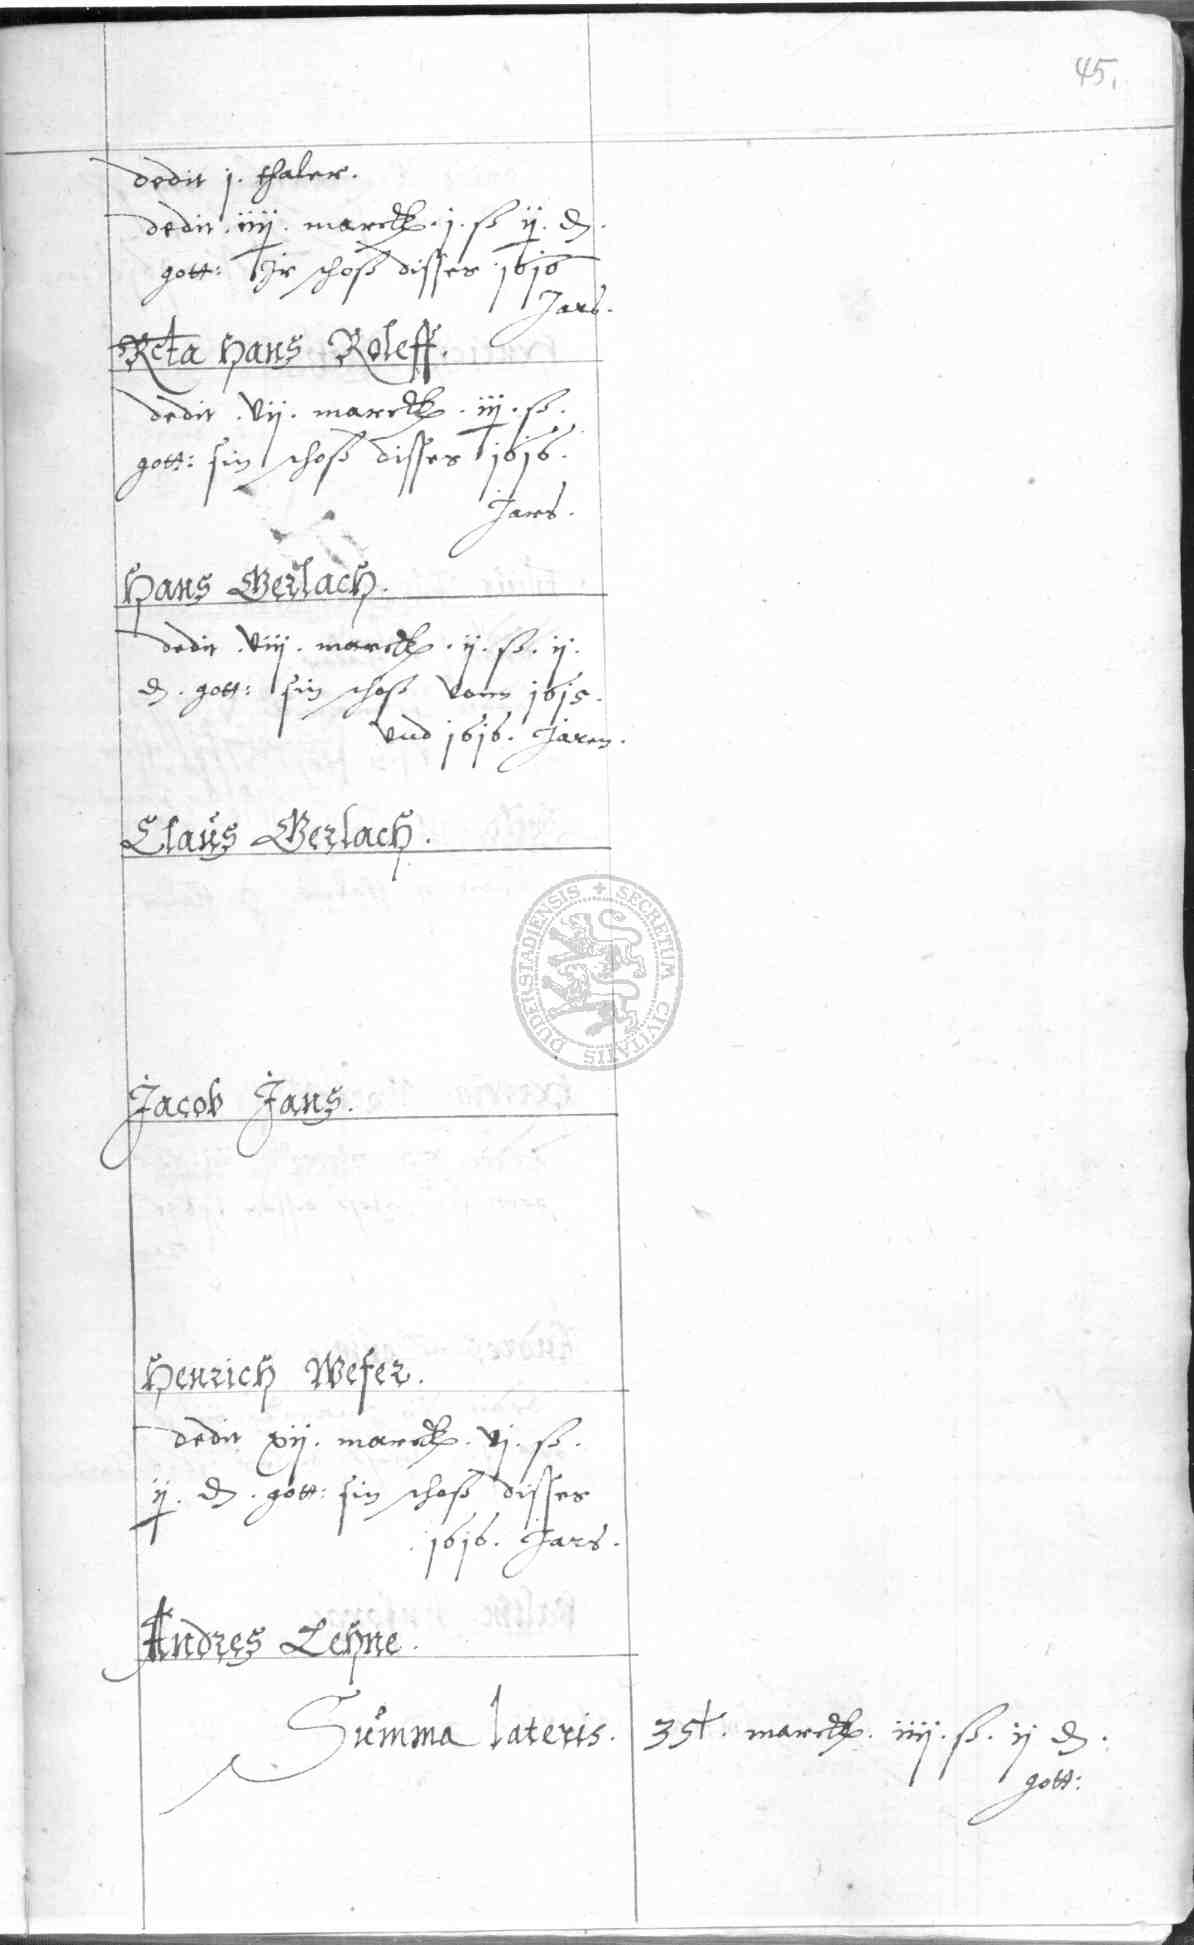 45.
dedit j. thaler.
dedit. iiij. marck. j. ß ij. ₰.
gott: Jr schoß disses 1616
Jars.
Rcta Hans Roleff.
dedit. vij. marck. iij. ß.
gott: sin schoß disses 1616.
Jars.
Hans Gerlach.
dedit. viij. marck. ij. ß. ij.
₰. gott: sin schoß vom 1615.
vnd 1616. Jaren.
Claus Gerlach.
DUDERSTADIENSIS + SECRETUM CIVITATIS
Jacob Jans.
Henrich Wefer.
dedit xij. marck. vj. ß.
ij. ₰. gott: sin schoß disses
1616. Jars.
Andres Lehne.
Summa lateris. marck. iiij. ß. ij ₰.
gott: